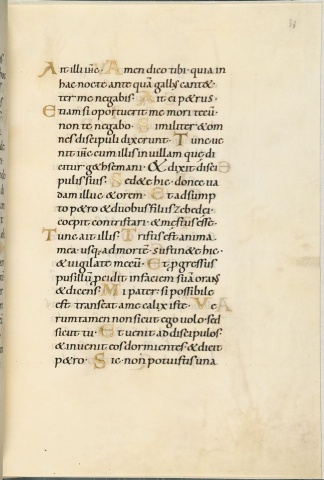 Ait illi iħc. Amen dico tibi. quia in
hac nocte ante quā gallus cantet
ter me negabis. Ait ei petrus.
Etiam si oportuerit me mori tecū
non te negabo. Similiter & om
nes discipuli dixerunt. Tunc ue
nit iħc cum illis in uillam que di
citur gethsemani. & dixit disci
pulis suis. Sedete hic. donec ua
dam illuc & orem. Et adsump
to petro & duobus filiis zebedei.
coepit contristari & mestus esse.
Tunc ait illis. Tristis est anima
mea usq; ad mortē. sustinete hic.
& uigilate mecū. Et progressus
pusillū procidit in faciem suā orans
& dicens. Mi pater. si possibile
est transeat a me calix iste. Ve
rumtamen non sicut ego uolo. sed
sicut tu. Et uenit ad discipulos.
& inuenit eos dormientes. & dicit
petro. Sic non potuistis una